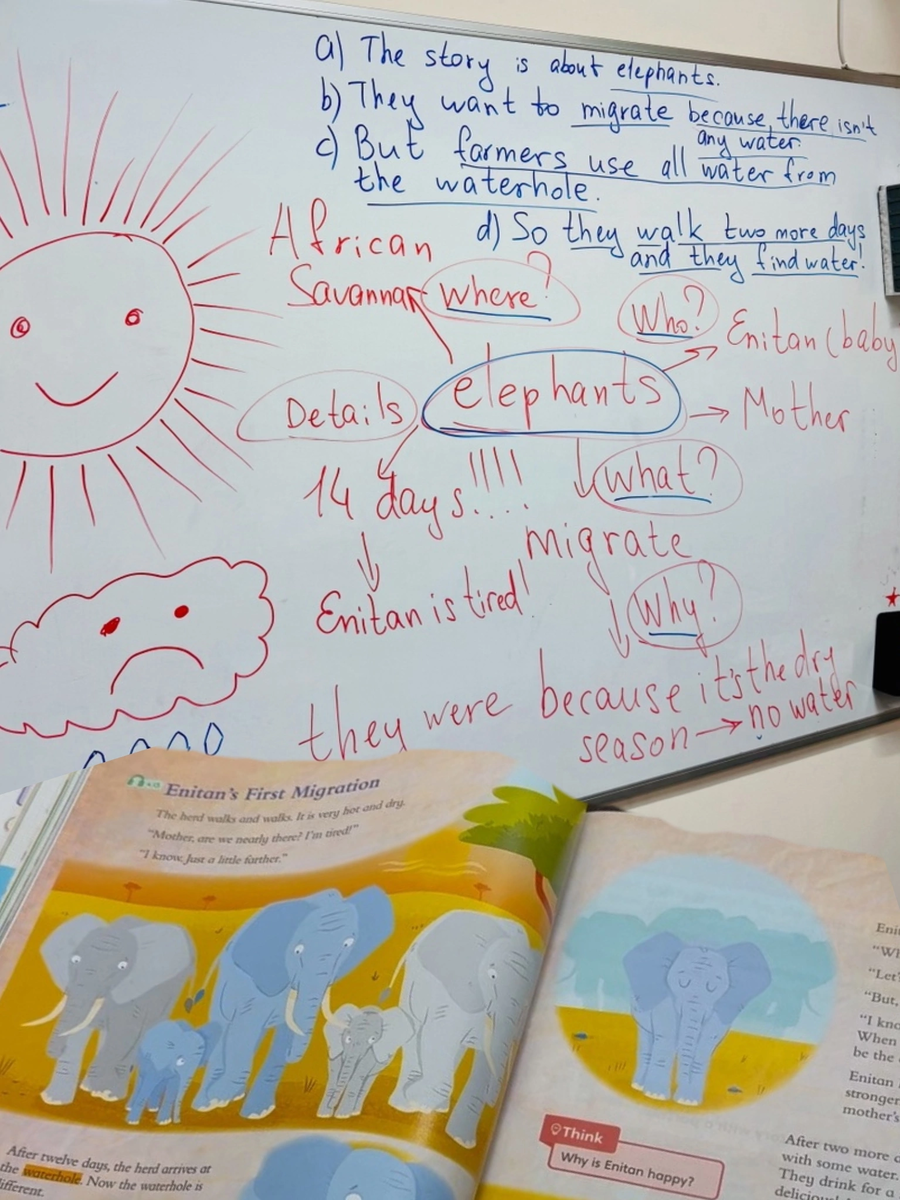 a) The story is about elephants.
b) They want to migrate because there isn't
any water.
c) But farmers use all water from
the waterhole.
d) So they walk two more days
and they find water!
African
Savannah
Where?
Who?
Enitan (baby
elephants
Mother
Details
14 days!!!!
What?
migrate
Enitan is tired!
Why?
they were because it's the dry
season → no water
Enitan's First Migration
The herd walks and walks. It is very hot and dry.
"Mother, are we nearly there? I'm tired!"
"I know. Just a little farther."
After twelve days, the herd arrives at
the waterhole. Now the waterhole is
different.
Think
Why is Enitan happy?
"But,
"I
When
be the
Enitan
stronger
mother's
After two more
with some water.
They drink for a